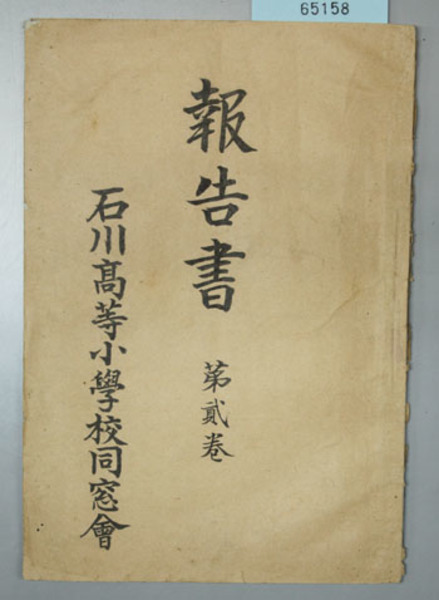 65158
報告書 第貳卷
石川髙等小學校同窓會